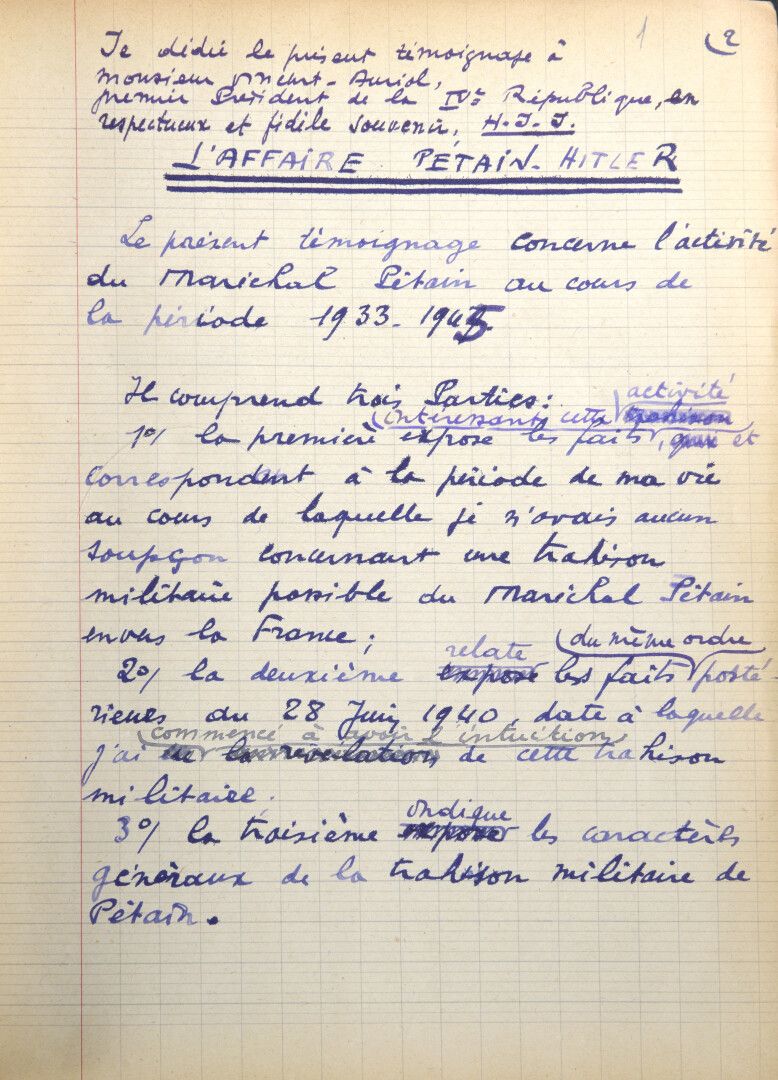 1
2
Je dédie le présent témoignage à
monsieur Vincent-Auriol,
premier Président de la IVe République, en
respectueux et fidèle souvenir, H.J.J.
L'AFFAIRE PÉTAIN-HITLER
Le présent témoignage concerne l'activité
du Maréchal Pétain au cours de
la période 1933-1945.
Il comprend trois Parties:
activité
intéressant cette trahison
1o/ la première expose les faits, qui et
correspondent à la période de ma vie
au cours de laquelle je n'avais aucun
soupçon concernant une trahison
militaire possible du Maréchal Pétain
envers la France;
relate du même ordre
2o/ la deuxième expose les faits posté-
rieurs au 28 Juin 1940, date à laquelle
commencé à avoir l'intuition
j'ai eu la révélation de cette trahison
militaire;
indique
3o/ la troisième expose les caractères
généraux de la trahison militaire de
Pétain.